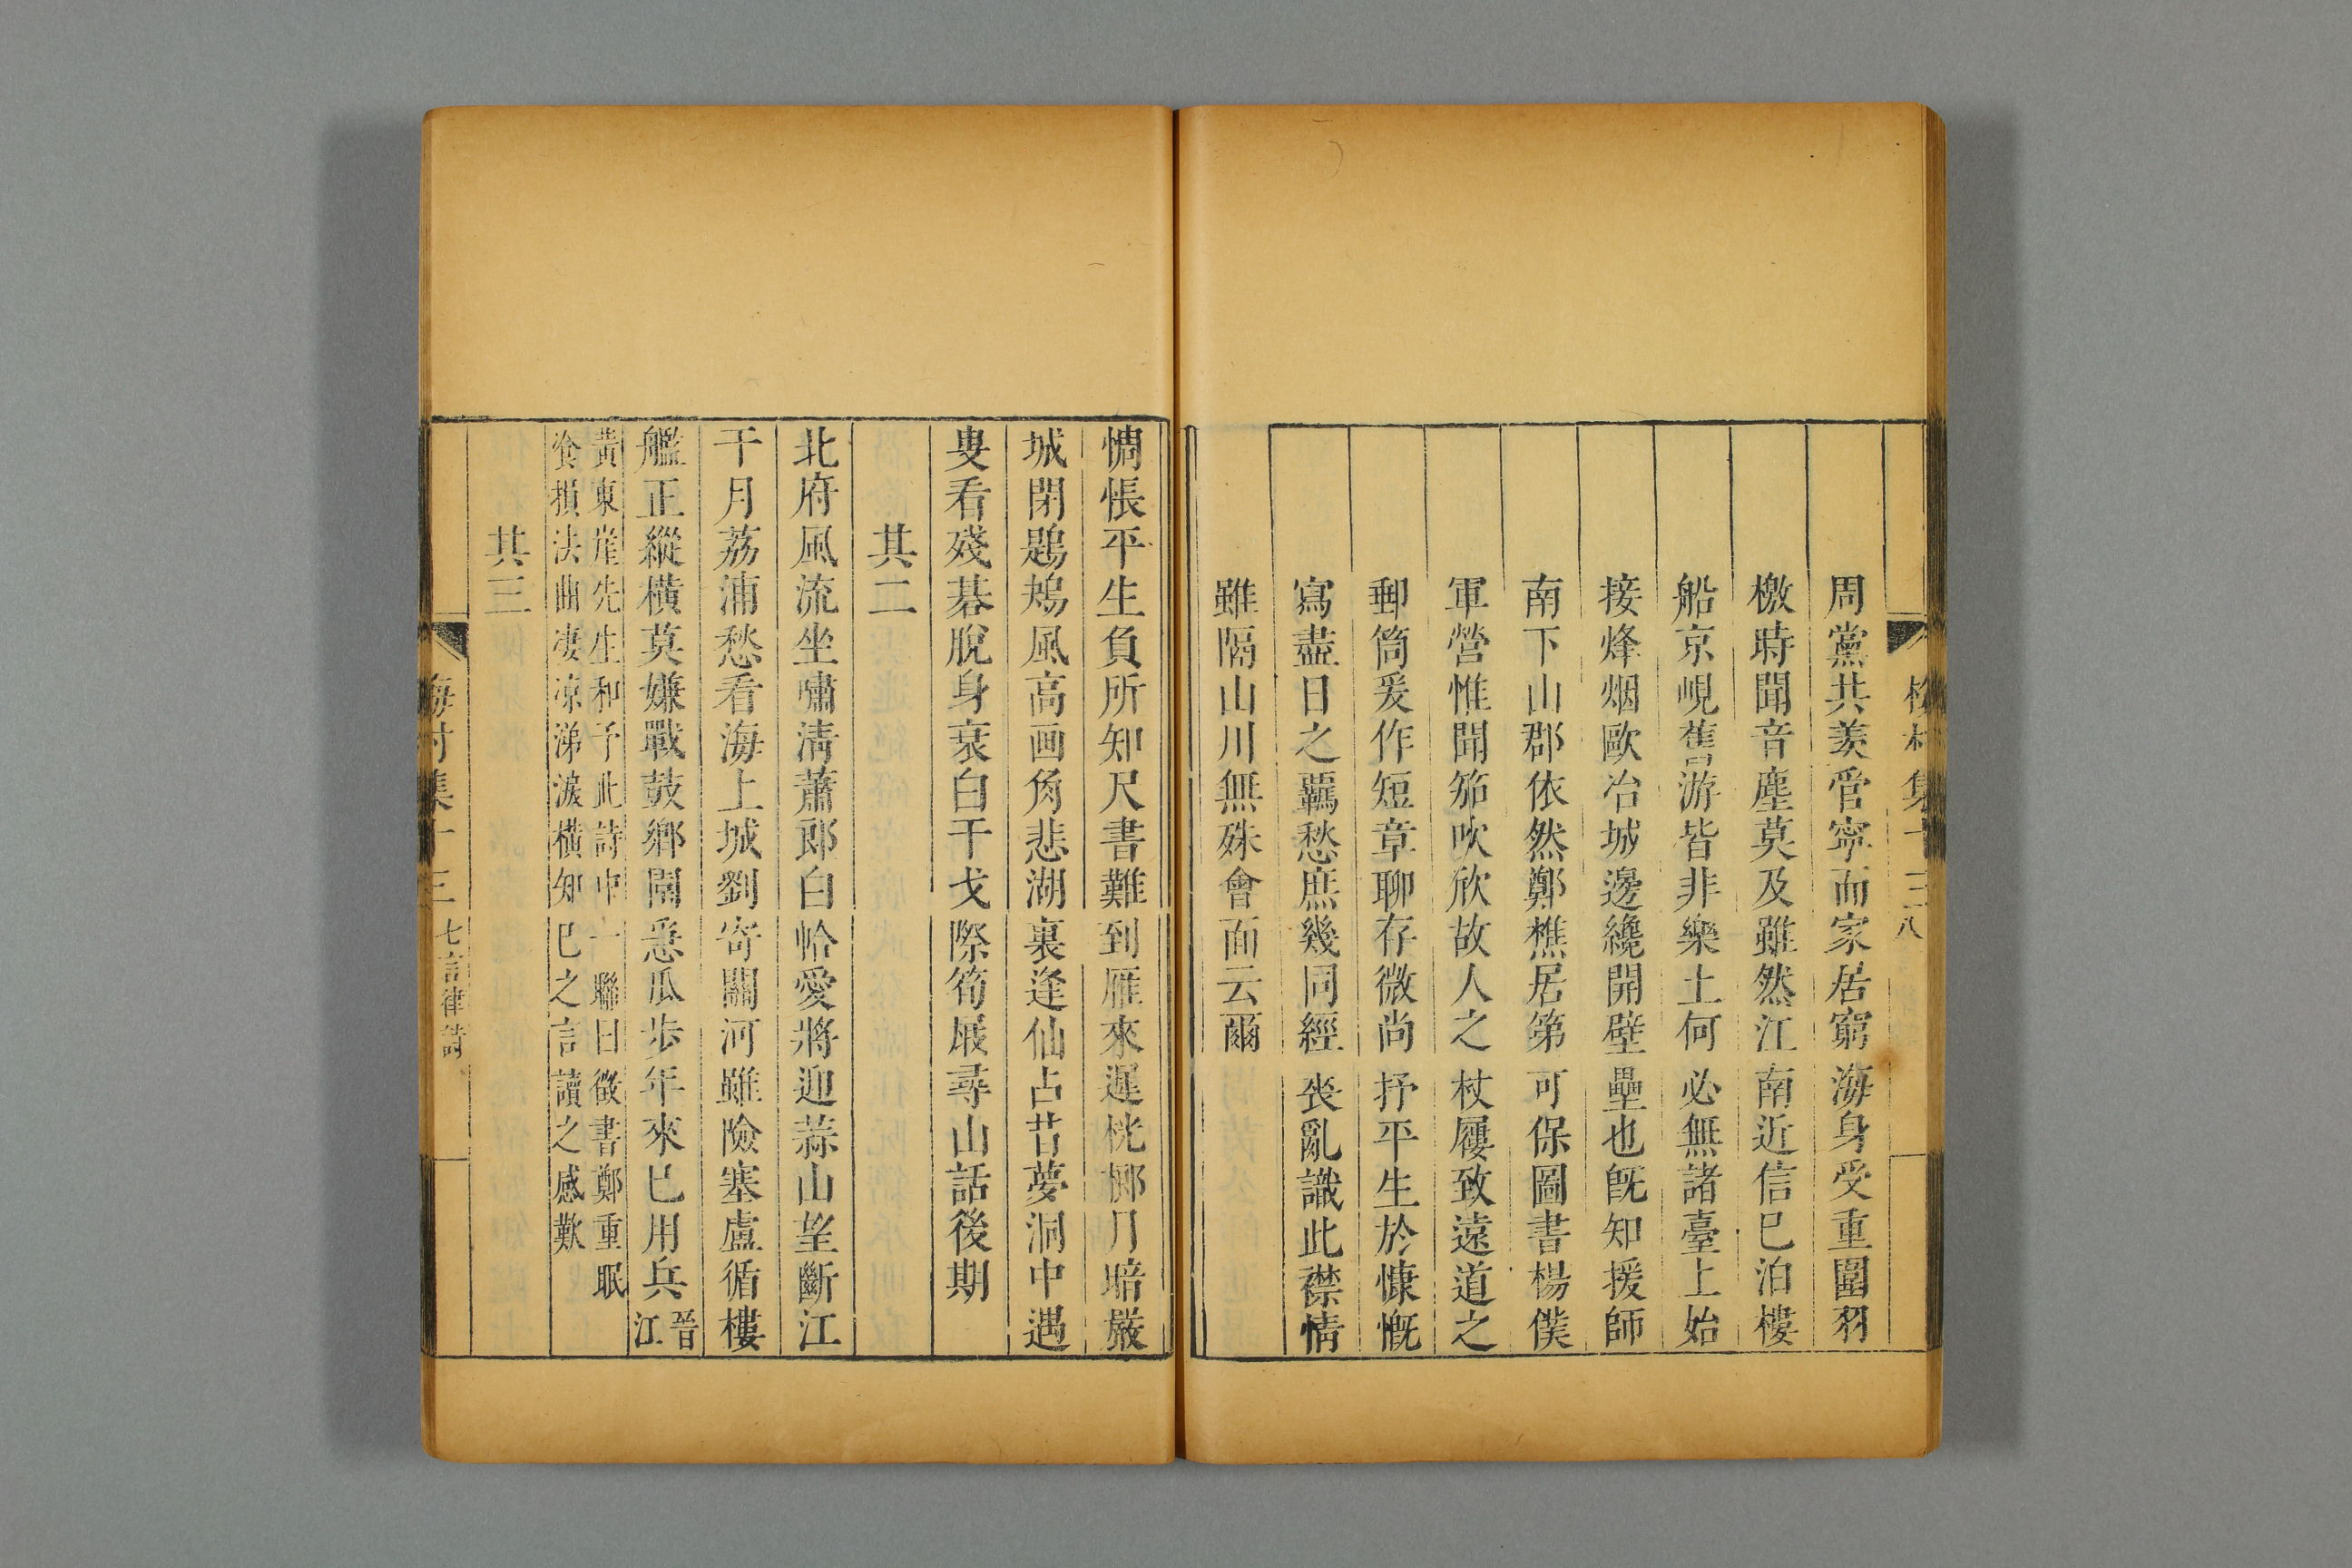 周黨共羨管寧而家居窮海身受重圍羽
檄時聞音塵莫及雖然江南近信已泊樓
船京峴舊游皆非樂土何必無諸臺上始
接烽烟歐冶城邊纔開壁壘也旣知援師
南下山郡依然鄭樵居第可保圖書楊僕
軍營惟聞笳吹欣故人之杖屨致遠道之
郵筒爰作短章聊存微尚抒平生於慷慨
寫盡日之羈愁庶幾同經喪亂識此襟情
雖隔山川無殊會面云爾
惆悵平生負所知尺書難到雁來遲桄榔月暗嚴
城閉鶗鴂風高画角悲湖裏逢仙占昔夢洞中遇
叟看殘碁脫身衰白干戈際筍屐尋山話後期
其二
北府風流坐嘯淸蕭郎白帢愛將迎蒜山望斷江
干月荔浦愁看海上城劉寄關河雖險塞盧循樓
艦正縱橫莫嫌戰鼓鄉園急瓜步年來已用兵晉江
黃東崖先生和予此詩中一聯曰徵書鄭重眠
飡損法曲凄凉涕淚橫知已之言讀之感歎
其三
梅村集十三
七言律詩